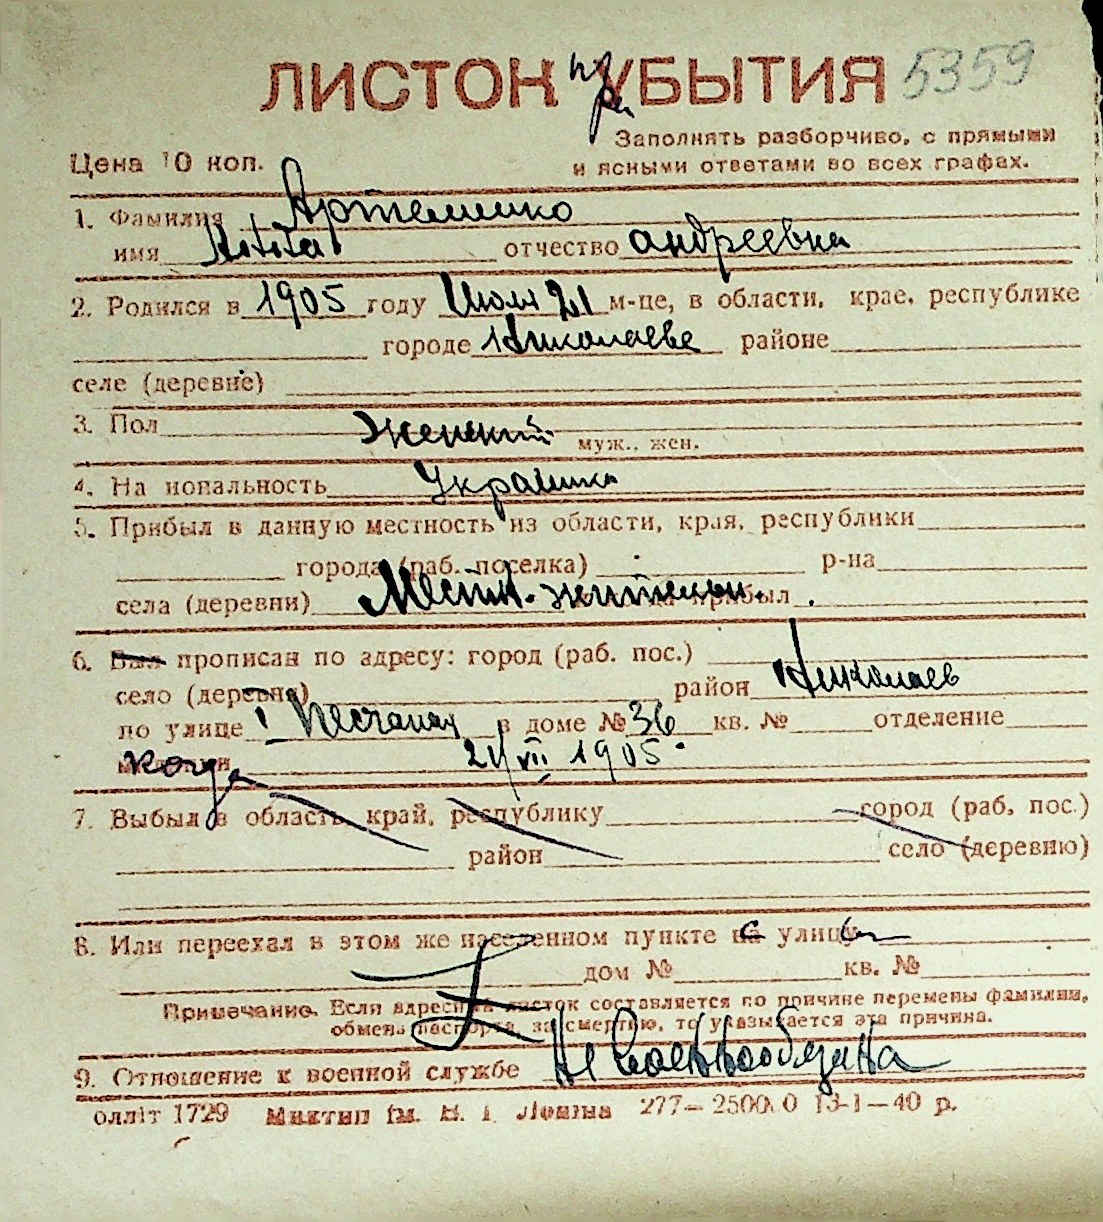 ЛИСТОК УБЫТИЯ при 5359
Заполнять разборчиво, с прямыми
Цена 10 коп. и ясными ответами во всех графах.
1. Фамилия Артеменко
имя отчество Андреевна
2. Родился в 1905 году Июля 21 м-це, в области, крае, республике
городе Николаеве районе
селе (деревне)
3. Пол Женский муж., жен.
4. Национальность Украинка
5. Прибыл в данную местность из области, края, республики
города (раб. поселка) р-на
села (деревни) Местн. жительн. прибыл
6. Был прописан по адресу: город (раб. пос.)
село (деревня) район Николаев
по улице I Песчаная в доме № 36 кв. № отделение
когда 21/VII 1905.
7. Выбыл в область, край, республику город (раб. пос.)
район село (деревню)
8. Или переехал в этом же населенном пункте на улицу
дом № кв. №
Примечание. Если адресный листок составляется по причине перемены фамилии,
обмена паспорта, за смертию, то указывается эта причина.
9. Отношение к военной службе Не Военнообязана
облліт 1729 Миктип ім. В. І. Леніна 277—25000 13-1—40 р.